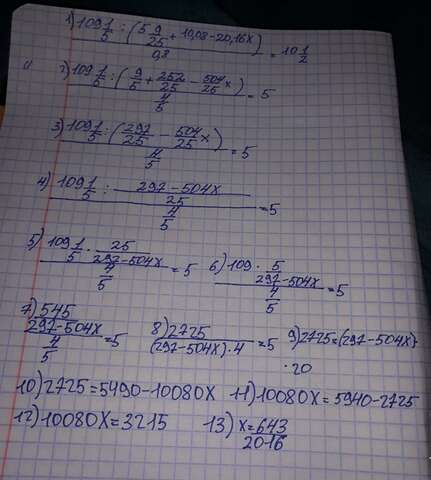 1) 109 1/5 : (5 9/25 + 10,08 - 20,16x) / 0,8 = 10 1/2
2) 109 1/5 : (9/5 + 252/25 - 504/25 x) / 4/5 = 5
3) 109 1/5 : (297/25 - 504/25 x) / 4/5 = 5
4) 109 1/5 : 297 - 504x / 25 / 4/5 = 5
5) 109 1/5 · 25 / 297 - 504x / 4/5 = 5 6) 109 · 5 / 297 - 504x / 4/5 = 5
7) 545 / 297 - 504x / 4/5 = 5 8) 2725 / (297 - 504x) · 4 = 5 9) 2725 = (297 - 504x) ·
· 20
10) 2725 = 5490 - 10080x 11) 10080x = 5940 - 2725
12) 10080x = 3215 13) x = 643 / 2016